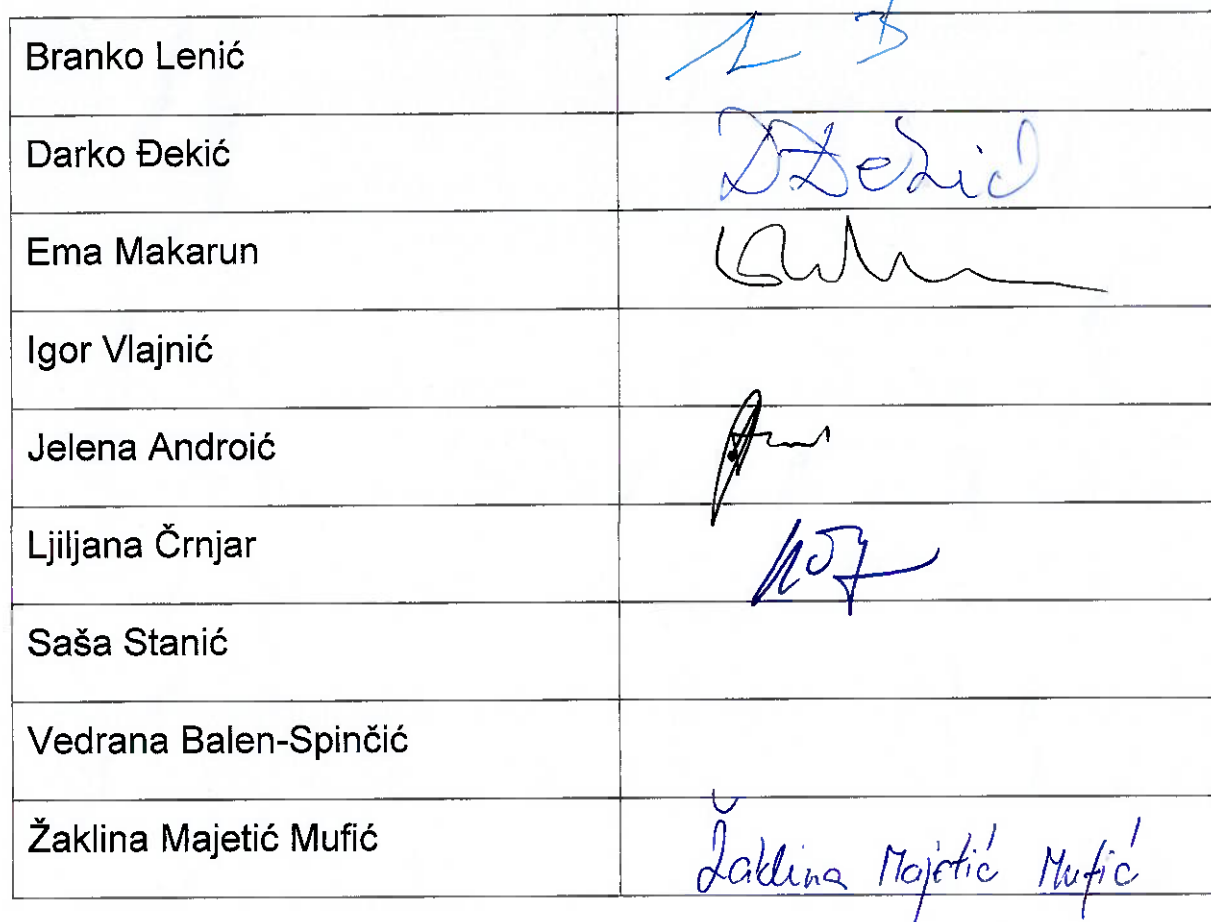 Branko Lenić
Darko Đekić
DĐekić
Ema Makarun
Igor Vlajnić
Jelena Androić
Ljiljana Črnjar
Saša Stanić
Vedrana Balen-Spinčić
Žaklina Majetić Mufić
Žaklina Majetić Mufić